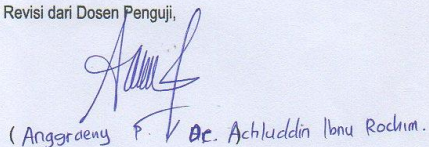 Revisi dari Dosen Penguji,
( Anggraeny P. Dr. Achluddin Ibnu Rochim.